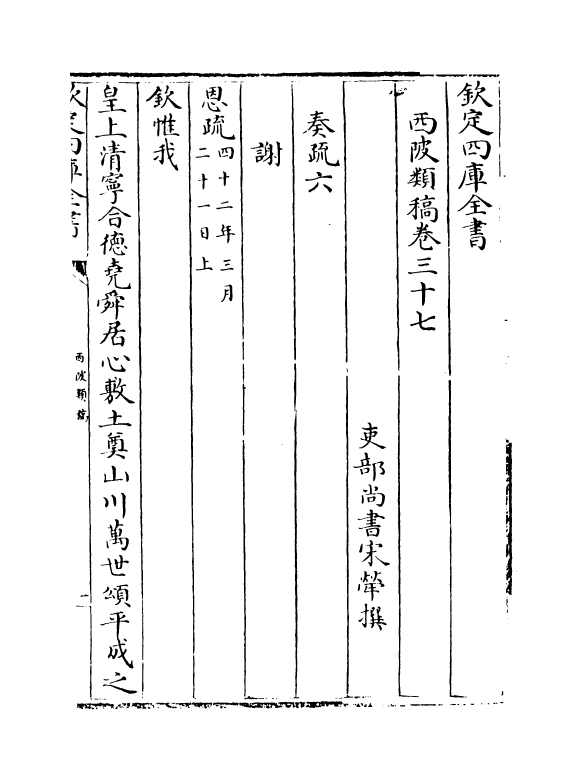 欽定四庫全書
西陂類稿卷三十七
吏部尚書宋犖撰
奏疏六
謝
恩疏四十二年三月
二十一日上
欽惟我
皇上清寧合德堯舜居心敷土奠山川萬世頌平成之
欽定四庫全書
西陂類稿